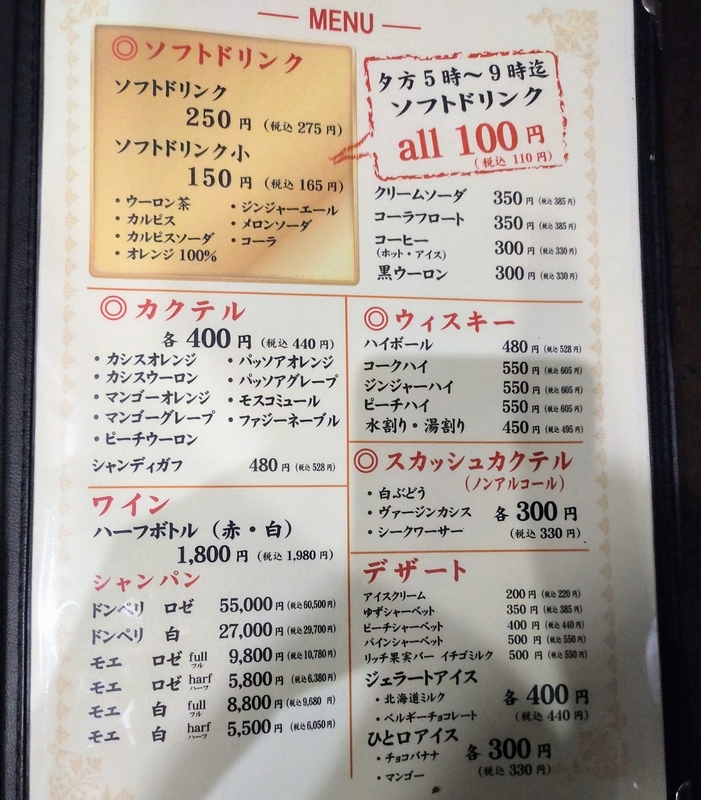 MENU
◎ソフトドリンク
ソフトドリンク
250 円 (税込 275円)
ソフトドリンク小
150 円 (税込 165円)
・ウーロン茶
・カルピス
・カルピスソーダ
・オレンジ 100%
・ジンジャーエール
・メロンソーダ
・コーラ
夕方5時〜9時迄
ソフトドリンク
all 100円
(税込 110円)
クリームソーダ 350 円 (税込 385円)
コーラフロート 350 円 (税込 385円)
コーヒー 300 円 (税込 330円)
(ホット・アイス)
黒ウーロン 300 円 (税込 330円)
◎カクテル
各 400 円 (税込 440円)
・カシスオレンジ
・カシスウーロン
・マンゴーオレンジ
・マンゴーグレープ
・ピーチウーロン
・パッソアオレンジ
・パッソアグレープ
・モスコミュール
・ファジーネーブル
シャンディガフ 480 円 (税込 528円)
◎ウィスキー
ハイボール 480 円 (税込 528円)
コークハイ 550 円 (税込 605円)
ジンジャーハイ 550 円 (税込 605円)
ピーチハイ 550 円 (税込 605円)
水割り・湯割り 450 円 (税込 495円)
◎スカッシュカクテル
(ノンアルコール)
・白ぶどう
・ヴァージンカシス
・シークワーサー
各 300 円
(税込 330円)
ワイン
ハーフボトル (赤・白)
1,800 円 (税込 1,980円)
シャンパン
ドンペリ ロゼ 55,000 円 (税込 60,500円)
ドンペリ 白 27,000 円 (税込 29,700円)
モエ ロゼ full フル 9,800 円 (税込 10,780円)
モエ ロゼ harf ハーフ 5,800 円 (税込 6,380円)
モエ 白 full フル 8,800 円 (税込 9,680 円)
モエ 白 harf ハーフ 5,500 円 (税込 6,050円)
デザート
アイスクリーム 200 円 (税込 220円)
ゆずシャーベット 350 円 (税込 385円)
ピーチシャーベット 400 円 (税込 440円)
パインシャーベット 500 円 (税込 550円)
リッチ果実バー イチゴミルク 500 円 (税込 550円)
ジェラートアイス
・北海道ミルク
・ベルギーチョコレート
各 400 円
(税込 440円)
ひと口アイス
・チョコバナナ
・マンゴー
各 300 円
(税込 330円)